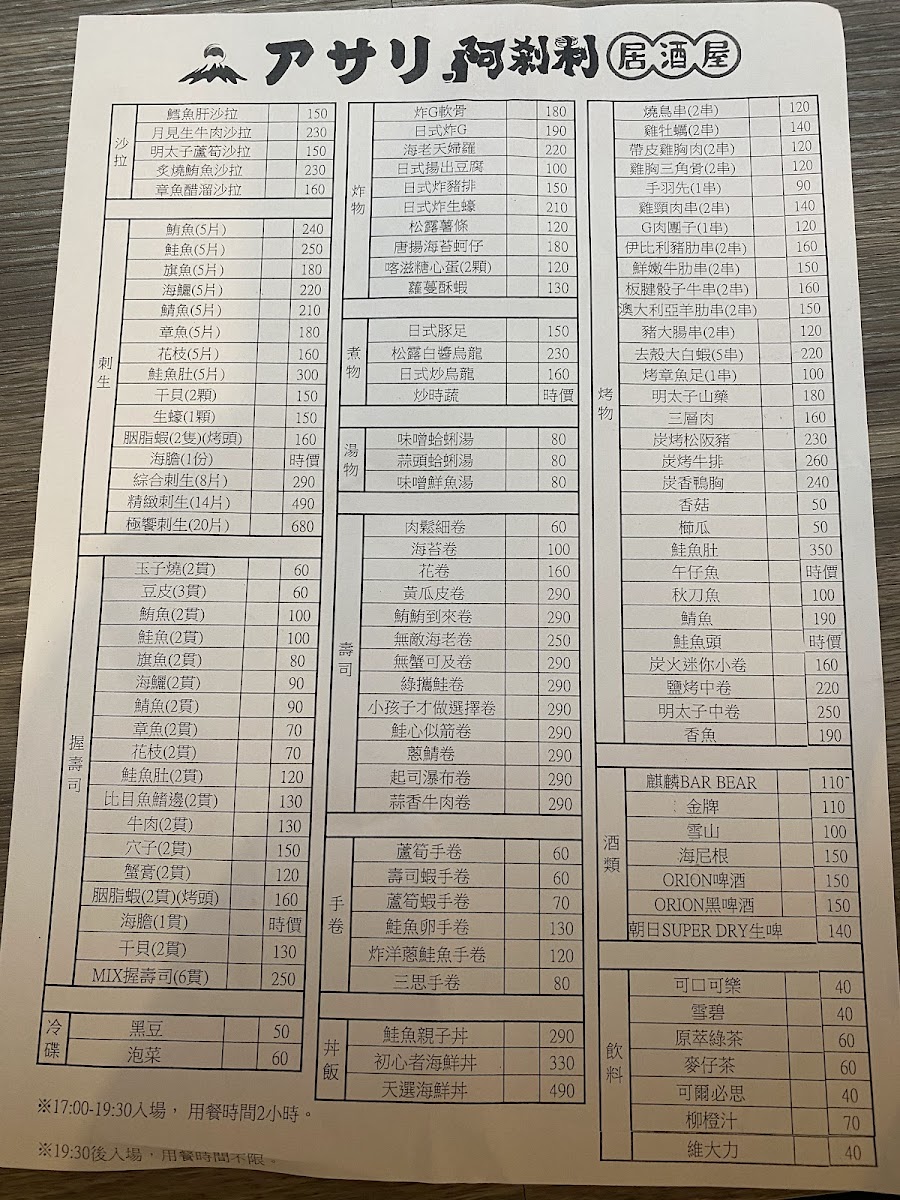 アサリ 阿剎利 居酒屋
沙拉
鱈魚肝沙拉 150
月見生牛肉沙拉 230
明太子蘆筍沙拉 150
炙燒鮪魚沙拉 230
章魚醋溜沙拉 160
刺生
鮪魚(5片) 240
鮭魚(5片) 250
旗魚(5片) 180
海鱺(5片) 220
鯖魚(5片) 210
章魚(5片) 180
花枝(5片) 160
鮭魚肚(5片) 300
干貝(2顆) 150
生蠔(1顆) 150
胭脂蝦(2隻)(烤頭) 160
海膽(1份) 時價
綜合刺生(8片) 290
精緻刺生(14片) 490
極饗刺生(20片) 680
握壽司
玉子燒(2貫) 60
豆皮(3貫) 60
鮪魚(2貫) 100
鮭魚(2貫) 100
旗魚(2貫) 80
海鱺(2貫) 90
鯖魚(2貫) 90
章魚(2貫) 70
花枝(2貫) 70
鮭魚肚(2貫) 120
比目魚鰭邊(2貫) 130
牛肉(2貫) 130
穴子(2貫) 150
蟹膏(2貫) 120
胭脂蝦(2貫)(烤頭) 160
海膽(1貫) 時價
干貝(2貫) 130
MIX握壽司(6貫) 250
冷碟
黑豆 50
泡菜 60
※17:00-19:30入場， 用餐時間2小時。
※19:30後入場，用餐時間不限。
炸物
炸G軟骨 180
日式炸G 190
海老天婦羅 220
日式揚出豆腐 100
日式炸豬排 150
日式炸生蠔 210
松露薯條 120
唐揚海苔蚵仔 180
喀滋糖心蛋(2顆) 120
蘿蔓酥蝦 130
煮物
日式豚足 150
松露白醬烏龍 230
日式炒烏龍 160
炒時蔬 時價
湯物
味噌蛤蜊湯 80
蒜頭蛤蜊湯 80
味噌鮮魚湯 80
壽司
肉鬆細卷 60
海苔卷 100
花卷 160
黃瓜皮卷 290
鮪鮪到來卷 290
無敵海老卷 250
無蟹可及卷 290
綠攜鮭卷 290
小孩子才做選擇卷 290
鮭心似箭卷 290
蔥鯖卷 290
起司瀑布卷 290
蒜香牛肉卷 290
手卷
蘆筍手卷 60
壽司蝦手卷 60
蘆筍蝦手卷 70
鮭魚卵手卷 130
炸洋蔥鮭魚手卷 120
三思手卷 80
丼飯
鮭魚親子丼 290
初心者海鮮丼 330
天選海鮮丼 490
烤物
燒鳥串(2串) 120
雞牡蠣(2串) 140
帶皮雞胸肉(2串) 120
雞胸三角骨(2串) 120
手羽先(1串) 90
雞頸肉串(2串) 140
G肉團子(1串) 120
伊比利豬肋串(2串) 160
鮮嫩牛肋串(2串) 150
板腱骰子牛串(2串) 160
澳大利亞羊肋串(2串) 150
豬大腸串(2串) 120
去殼大白蝦(5串) 220
烤章魚足(1串) 100
明太子山藥 180
三層肉 160
炭烤松阪豬 230
炭烤牛排 260
炭香鴨胸 240
香菇 50
櫛瓜 50
鮭魚肚 350
午仔魚 時價
秋刀魚 100
鯖魚 190
鮭魚頭 時價
炭火迷你小卷 160
鹽烤中卷 220
明太子中卷 250
香魚 190
酒類
麒麟BAR BEAR 110
金牌 110
雪山 100
海尼根 150
ORION啤酒 150
ORION黑啤酒 150
朝日SUPER DRY生啤 140
飲料
可口可樂 40
雪碧 40
原萃綠茶 60
麥仔茶 60
可爾必思 40
柳橙汁 70
維大力 40